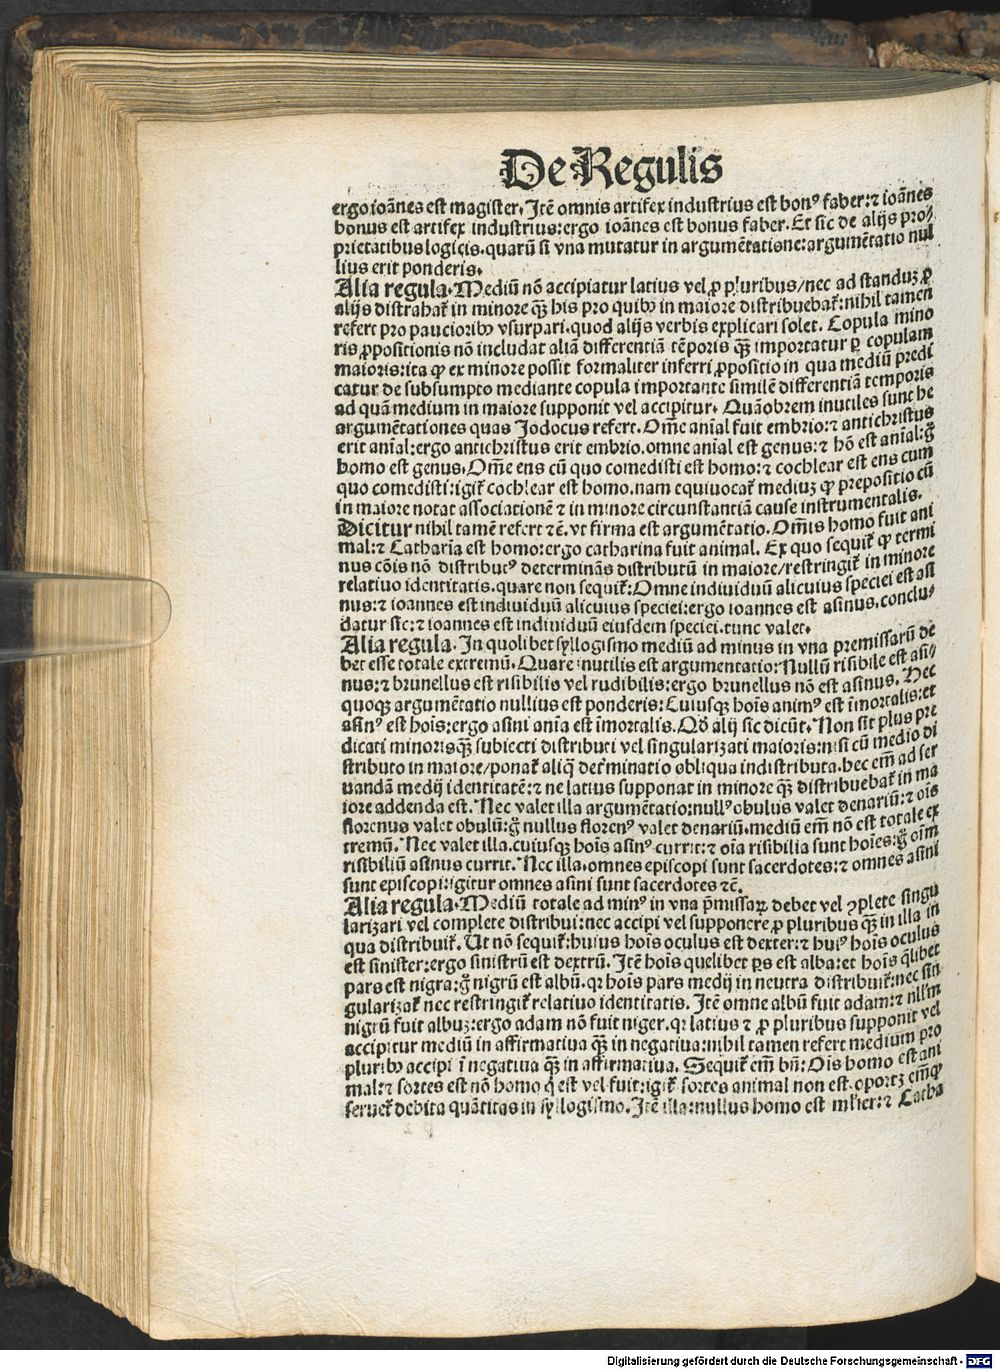 De Regulis
ergo ioãnes est magister. Itẽ omnis artifex industrius est bonꝰ faber: ⁊ ioãnes
bonus est artifex industrius: ergo ioãnes est bonus faber. Et sic de alijs pro-
prietatibus logicis. quarũ si vna mutatur in argumẽtatiõe: argumẽtatio nul
lius erit ponderis.
Alia regula. Mediũ nõ accipiatur latius vel ꝓ pluribus / nec ad standuꝫ ꝓ
alijs distrahat᷑ in minore qȝ̃ his pro quibꝰ in maiore distribuebat᷑: nihil tamen
refert pro paucioribꝰ vsurpari. quod alijs verbis explicari solet. Copula mino
ris ꝓpositionis nõ includat aliã differentiã tẽporis qȝ̃ importatur ꝑ copulam
maioris: ita ꝙ ex minore possit formaliter inferri ꝓpositio in qua mediũ predi
catur de subsumpto mediante copula importante similẽ differentiã temporis
ad quã medium in maiore supponit vel accipitur. Quãobrem inutiles sunt he
argumẽtationes quas Jodocus refert. Om̃e anĩal fuit embrio: ⁊ antichristus
erit anĩal: ergo antichristus erit embrio. omne anĩal est genus: ⁊ hõ est anĩal: g̃
homo est genus. Om̃e ens cũ quo comedisti est homo: ⁊ cochlear est ens cum
quo comedisti: igit᷑ cochlear est homo. nam equiuocat᷑ mediuꝫ ꝙ prepositio cũ
in maiore notat associationẽ ⁊ in minore circunstantiã cause instrumentalis.
Dicitur nihil tamẽ refert ⁊c̃. vt firma est argumẽtatio. Om̃is homo fuit ani
mal: ⁊ Catharĩa est homo: ergo catharina fuit animal. Ex quo sequit᷑ ꝙ termi
nus cõis nõ distributꝰ determinãs distributũ in maiore / restringit᷑ in minore
relatiuo identitatis. quare non sequit᷑: Omne indiuiduũ alicuius speciei est asi
nus: ⁊ ioannes est indiuiduũ alicuius speciei: ergo ioannes est asinus. conclu-
datur sic: ⁊ ioannes est indiuiduũ eiusdem speciei. tunc valet.
Alia regula. In quolibet syllogismo mediũ ad minus in vna premissarũ de
bet esse totale extremũ. Quare inutilis est argumentatio: Nullũ risibile est asi-
nus: ⁊ brunellus est risibilis vel rudibilis: ergo brunellus nõ est asinus. Nec
quoqȝ argumẽtatio nullius est ponderis: Cuiusqȝ hoĩs animꝰ est ĩmortalis: et
asinꝰ est hoĩs: ergo asini anĩa est ĩmortalis. Qđ alij sic dicũt. Non sit plus pre
dicati minoris qȝ̃ subiecti distributi vel singularizati maioris: nisi cũ medio di
stributo in maiore / ponat᷑ aliq̃ det᷑minatio obliqua indistributa. hec em̃ ad ser
uandã medij identitatẽ: ⁊ ne latius supponat in minore qȝ̃ distribuebat᷑ in ma
iore addenda est. Nec valet illa argumẽtatio: nullꝰ obulus valet denariũ: ⁊ oĩs
florenus valet obulũ: g̃ nullus florenꝰ valet denariũ. mediũ em̃ nõ est totale ex
tremũ. Nec valet illa. cuiusqȝ hoĩs asinꝰ currit: ⁊ oĩa risibilia sunt hoĩes: g̃ oĩm
risibiliũ asinus currit. Nec illa. omnes episcopi sunt sacerdotes: ⁊ omnes asini
sunt episcopi: igitur omnes asini sunt sacerdotes ⁊c̃.
Alia regula. Mediũ totale ad minꝰ in vna p̃missaꝝ debet vel ꝯplete singu
larizari vel complete distribui: nec accipi vel supponere ꝓ pluribus qȝ̃ in illa in
qua distribuit᷑. Ut nõ sequit᷑: huius hoĩs oculus est dexter: ⁊ huiꝰ hoĩs oculus
est sinister: ergo sinistrũ est dextrũ. Itẽ hoĩs quelibet ꝑs est alba: et hoĩs q̃libet
pars est nigra: g̃ nigrũ est albũ. qꝛ hoĩs pars medij in neutra distribuit᷑: nec sin
gularizat᷑ nec restringit᷑ relatiuo identitatis. Itẽ omne albũ fuit adam: ⁊ nllm̃
nigrũ fuit albuꝫ: ergo adam nõ fuit niger. qꝛ latius ⁊ ꝓ pluribus supponit vel
accipitur mediũ in affirmatiua qȝ̃ in negatiua: nihil tamen refert medium pro
pluribꝰ accipi ĩ negatiua qȝ̃ in affirmatiua. Sequit᷑ em̃ bñ: Oĩs homo est ani
mal: ⁊ sortes est nõ homo q̃ est vel fuit: igit᷑ sortes animal non est. oportꝫ em̃ ꝙ
seruet᷑ debita quãtitas in syllogismo. Itẽ illa: nullus homo est ml'ier: ⁊ Catha
Digitalisierung gefördert durch die Deutsche Forschungsgemeinschaft - DFG